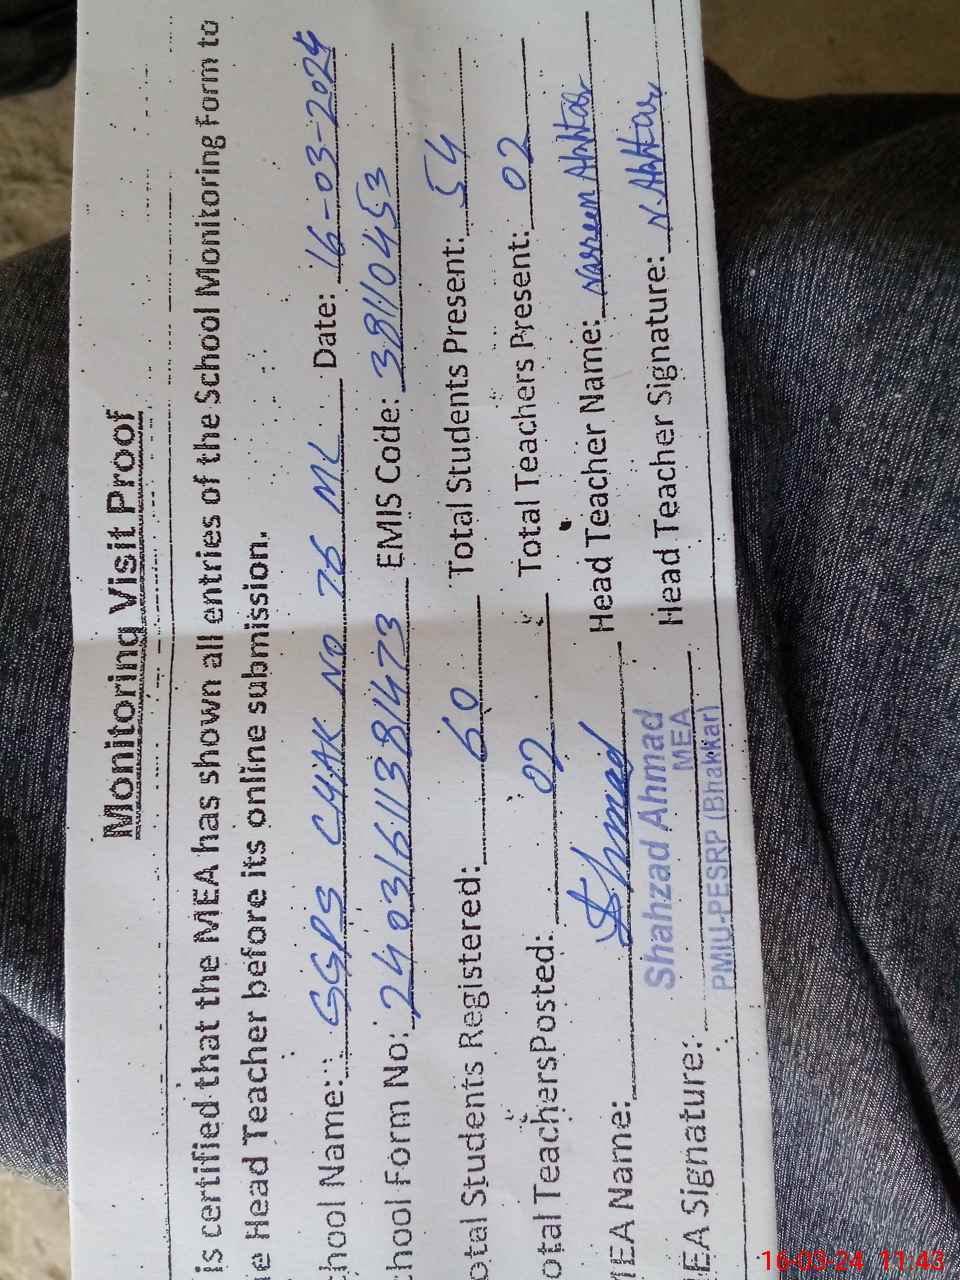 Monitoring Visit Proof
is certified that the MEA has shown all entries of the School Monitoring Form to
e Head Teacher before its online submission.
chool Name: GGPS CHAK NO 76 ML Date: 16-03-2024
chool Form No: 24031611381473 EMIS Code: 38110453
otal Students Registered: 60 Total Students Present: 54
otal Teachers Posted: 02 Total Teachers Present: 02
MEA Name: Ahmad Head Teacher Name: Nasreen Akhtar
Shahzad Ahmad
MEA
PMIU-PESRP (Bhakkar)
MEA Signature: Head Teacher Signature: N. Akhtar
16-03-24 11:43